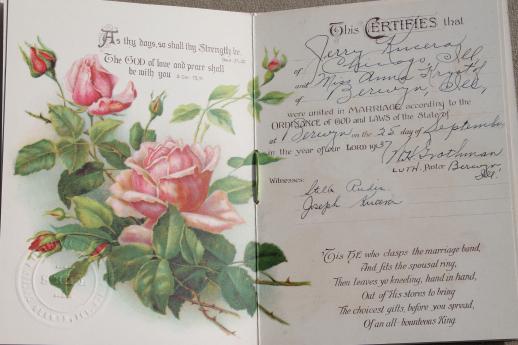 As thy days, so shall thy Strength be.
The GOD of love and peace shall
be with you
This CERTIFIES that
Jerry Kucera
of Chicago, Ill
and Miss Anna
of Berwyn, Ill,
were united in MARRIAGE according to the
ORDINANCE of GOD and LAWS of the State of
at Berwyn on the 25 day of September,
in the year of our LORD 1937
Grothman
LUTH. Pastor Berwyn
Ill.
Witnesses:
Stella
Joseph Kucera
'Tis HE who clasps the marriage band,
And fits the spousal ring,
Then leaves ye kneeling, hand in hand,
Out of His stores to bring
The choicest gifts, before you spread,
Of an all-bounteous King.